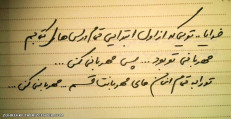 خدایا .. تویی که از اول ابتدایی تمام درس های
مهربانی تو بود ... پس مهربانی کن ...
تو را به تمام های مهربانت قسم .. مهربانی کن ...